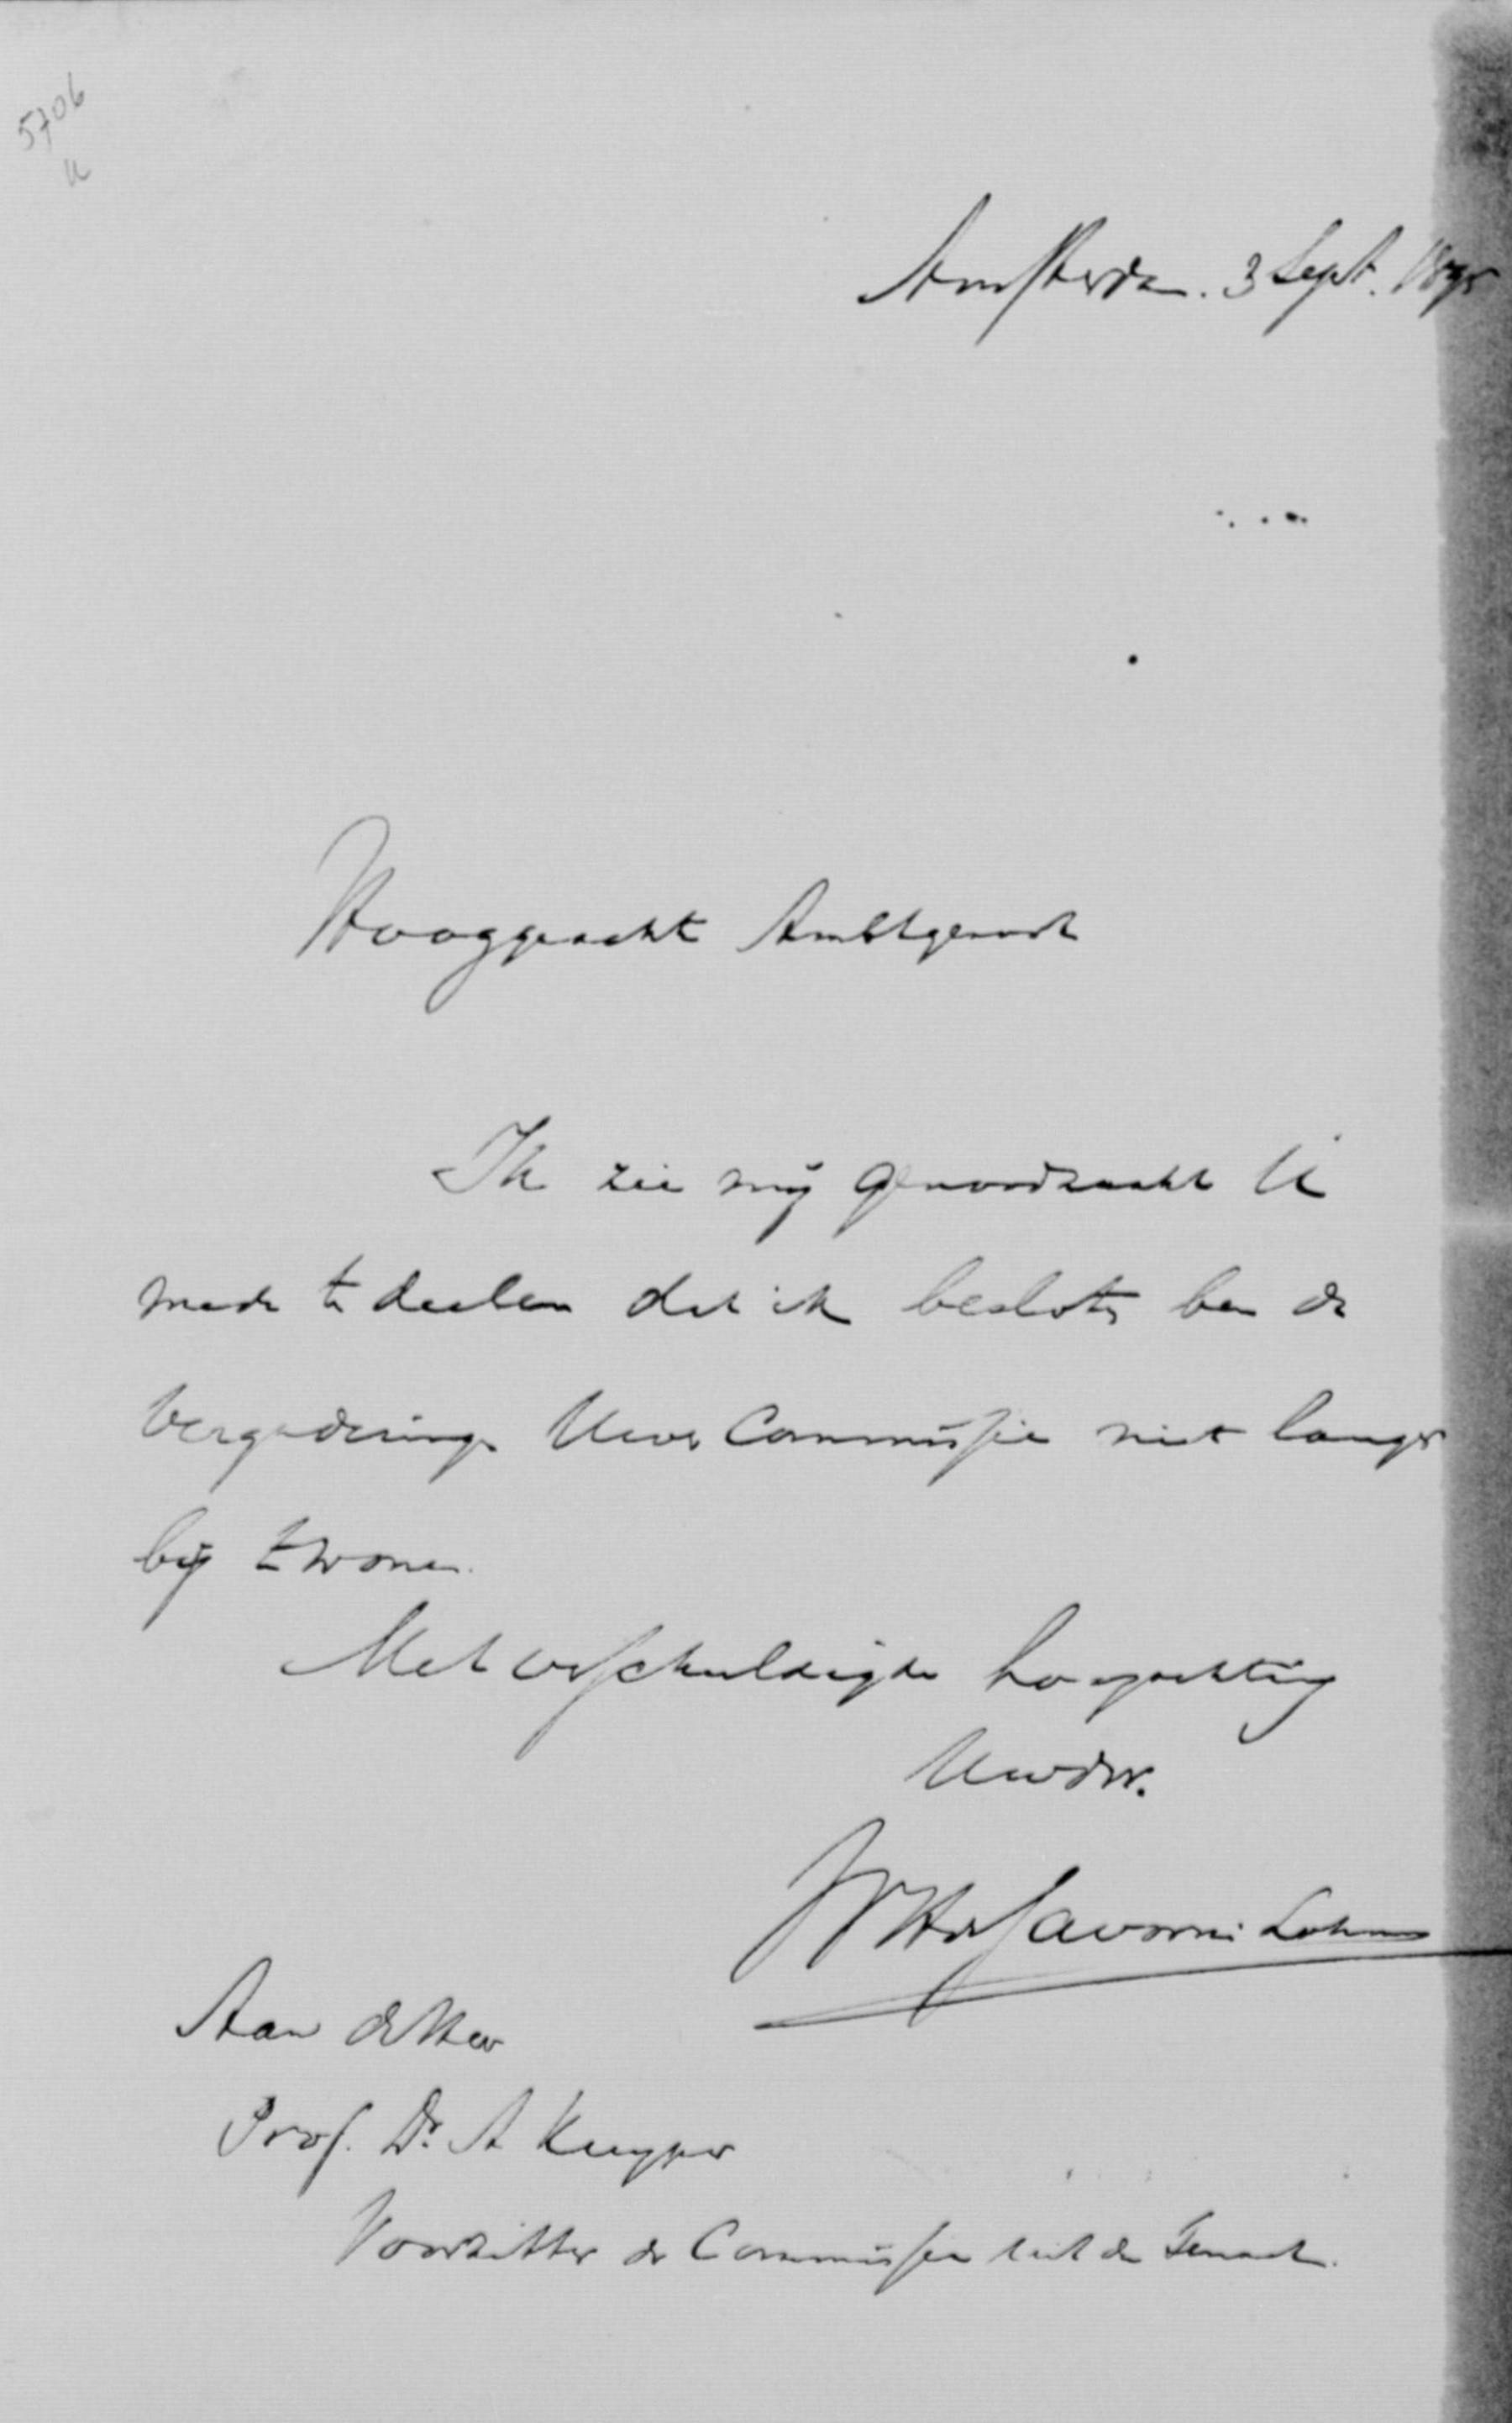 5706
Amsterdam. 3 Sept. 1895
Hooggeachte Ambtgenoot
Ik zie mij genoodzaakt U
mede te deelen dat ik besloten ben de
vergaderingen Uwer Commissie niet langer
bij te wonen.
Met verschuldigde hoogachting
Uwdw.
WH de Savornin Lohman
Aan den Heer
Prof. Dr. A Kuyper
Voorzitter der Commissie uit den Senaat.